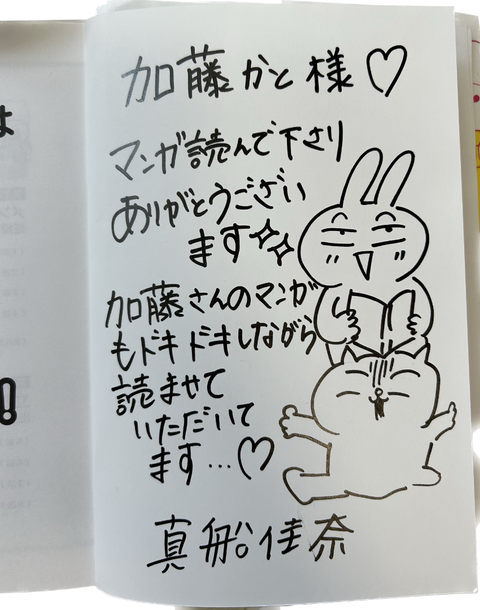 加藤かと様♡
マンガ読んで下さり
ありがとうござい
ます✨
加藤さんのマンガ
もドキドキしながら
読ませて
いただいて
ます…♡
真船佳奈
よ
!